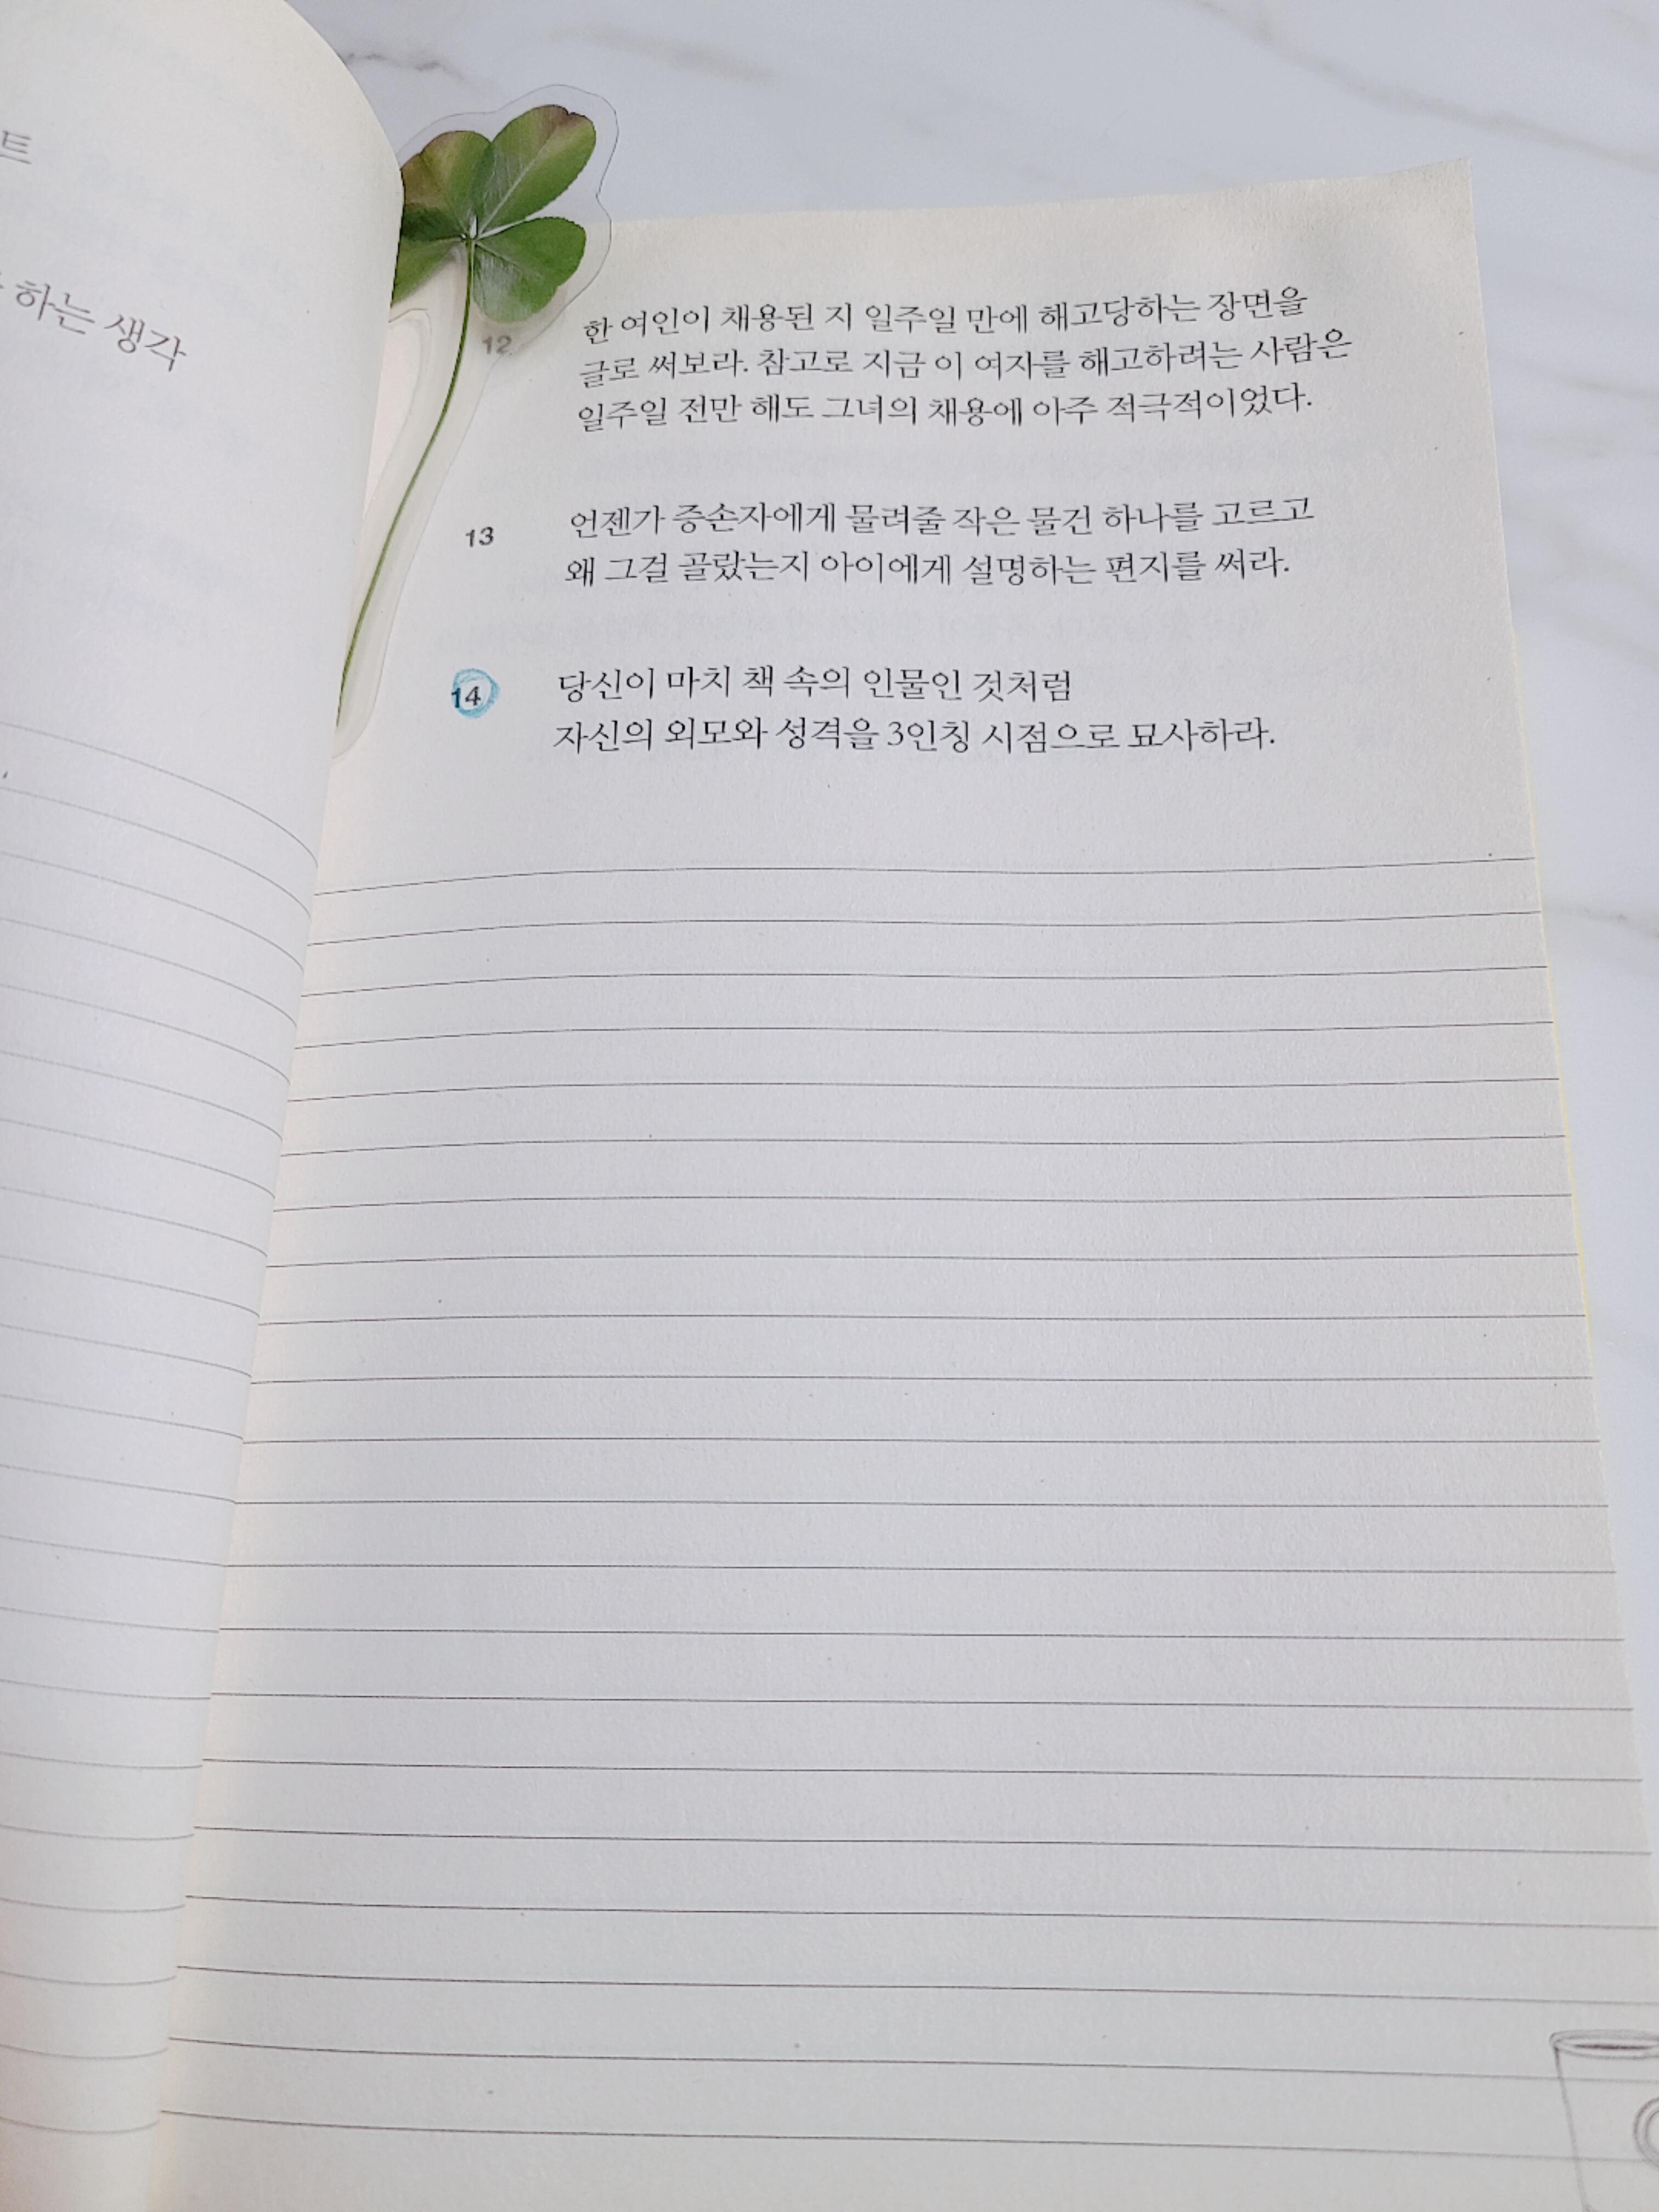 트
하는 생각
12
한 여인이 채용된 지 일주일 만에 해고당하는 장면을
글로 써보라. 참고로 지금 이 여자를 해고하려는 사람은
일주일 전만 해도 그녀의 채용에 아주 적극적이었다.
13
언젠가 증손자에게 물려줄 작은 물건 하나를 고르고
왜 그걸 골랐는지 아이에게 설명하는 편지를 써라.
14
당신이 마치 책 속의 인물인 것처럼
자신의 외모와 성격을 3인칭 시점으로 묘사하라.